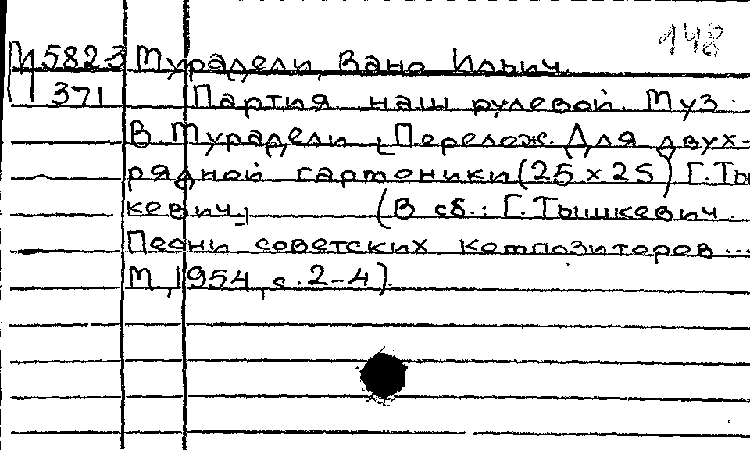 148
М 5823 Мурадели, Вано Ильич.
371 Партия наш рулевой. Муз.
В. Мурадели [Перелож. Для двух-
рядной гармоники (25 x 25) Г. Ты
кевич] (В сб.: Г. Тышкевич.
Песни советских композиторов...
М, 1954, с. 2-4)